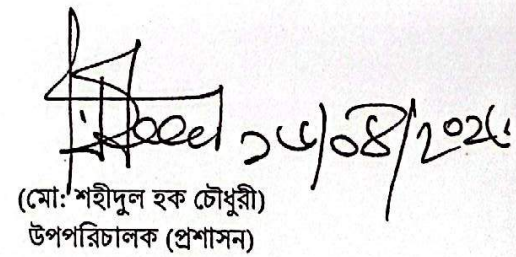 ১৬/০৪/২০২৫
(মো: শহীদুল হক চৌধুরী)
উপপরিচালক (প্রশাসন)